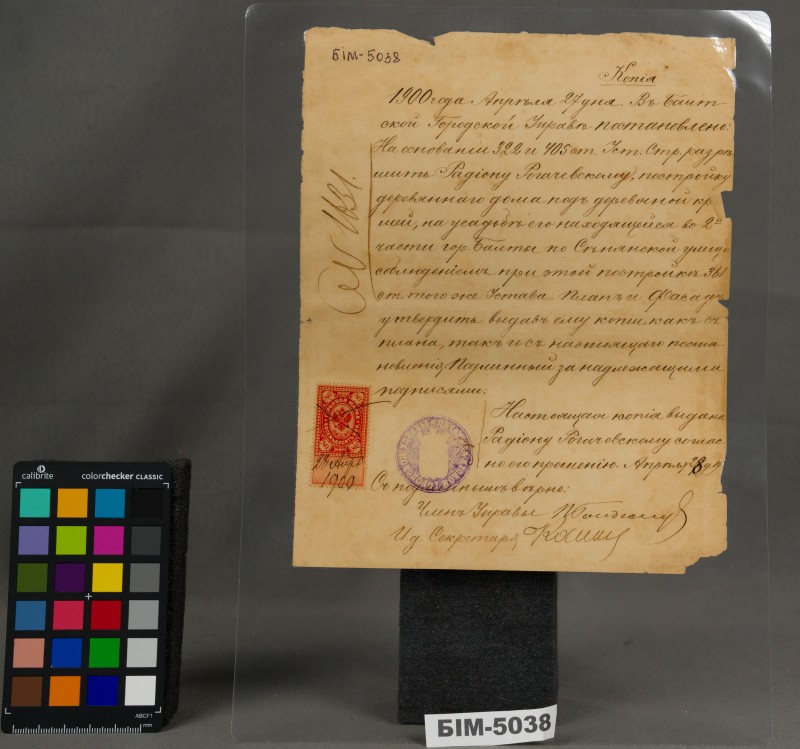 БІМ-5038
Копія
1900 года Апрѣля 27 дня. Въ Балт-
ской Городской Управѣ постановлено:
На основаніи 322 и 405 ст. Уст. Стр. разрѣ
шить Радіону Рогачевскому, постройку
деревяннаго дома подъ деревянной кр
шей, на усадьбѣ его находящейся во 2й
части гор. Балты по Сѣнянской улицѣ
соблюденіемъ при этой постройкѣ 361
ст. того же Устава. Планъ и Фасадъ
утвердить выдавъ ему копіи, какъ съ
плана, такъ и съ настоящаго поста-
новленія. Подлинный за надлежащими
подписями:
№ 1631.
Настоящая копія выдана
Радіону Рогачевскому соглас
но его прошенію. Апрѣля 28 дня
1900
Съ подлиннымъ вѣрно:
Членъ Управы
И.д. Секретаря
calibrite
colorchecker CLASSIC
ABCF1
mm
БІМ-5038